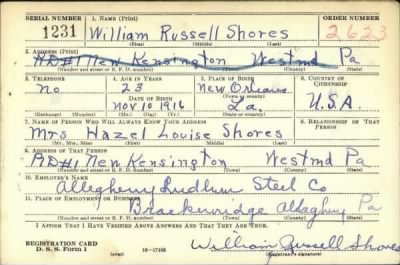 SERIAL NUMBER 1. NAME (Print) ORDER NUMBER
1231 William Russell Shores 2623
(First) (Middle) (Last)
2. ADDRESS (Print)
RD#1 New Kensington Westmd Pa
(Number and street or R. F. D. number) (Town) (County) (State)
3. TELEPHONE 4. AGE IN YEARS 5. PLACE OF BIRTH 6. COUNTRY OF CITIZENSHIP
No 23 New Orleans
DATE OF BIRTH (Town or county)
Nov 10 1916 La. U.S.A.
(Exchange) (Number) (Mo.) (Day) (Yr.) (State or country)
7. NAME OF PERSON WHO WILL ALWAYS KNOW YOUR ADDRESS 8. RELATIONSHIP OF THAT PERSON
Mrs Hazel Louise Shores
(Mr., Mrs., Miss) (First) (Middle) (Last)
9. ADDRESS OF THAT PERSON
RD#1 New Kensington Westmd Pa
(Number and street or R. F. D. number) (Town) (County) (State)
10. EMPLOYER'S NAME
Allegheny Ludlum Steel Co
11. PLACE OF EMPLOYMENT OR BUSINESS
Brackenridge Allegheny Pa
(Number and street or R. F. D. number) (Town) (County) (State)
I AFFIRM THAT I HAVE VERIFIED ABOVE ANSWERS AND THAT THEY ARE TRUE.
REGISTRATION CARD
D. S. S. Form 1 (over) William Russell Shores
(Registrant's signature)